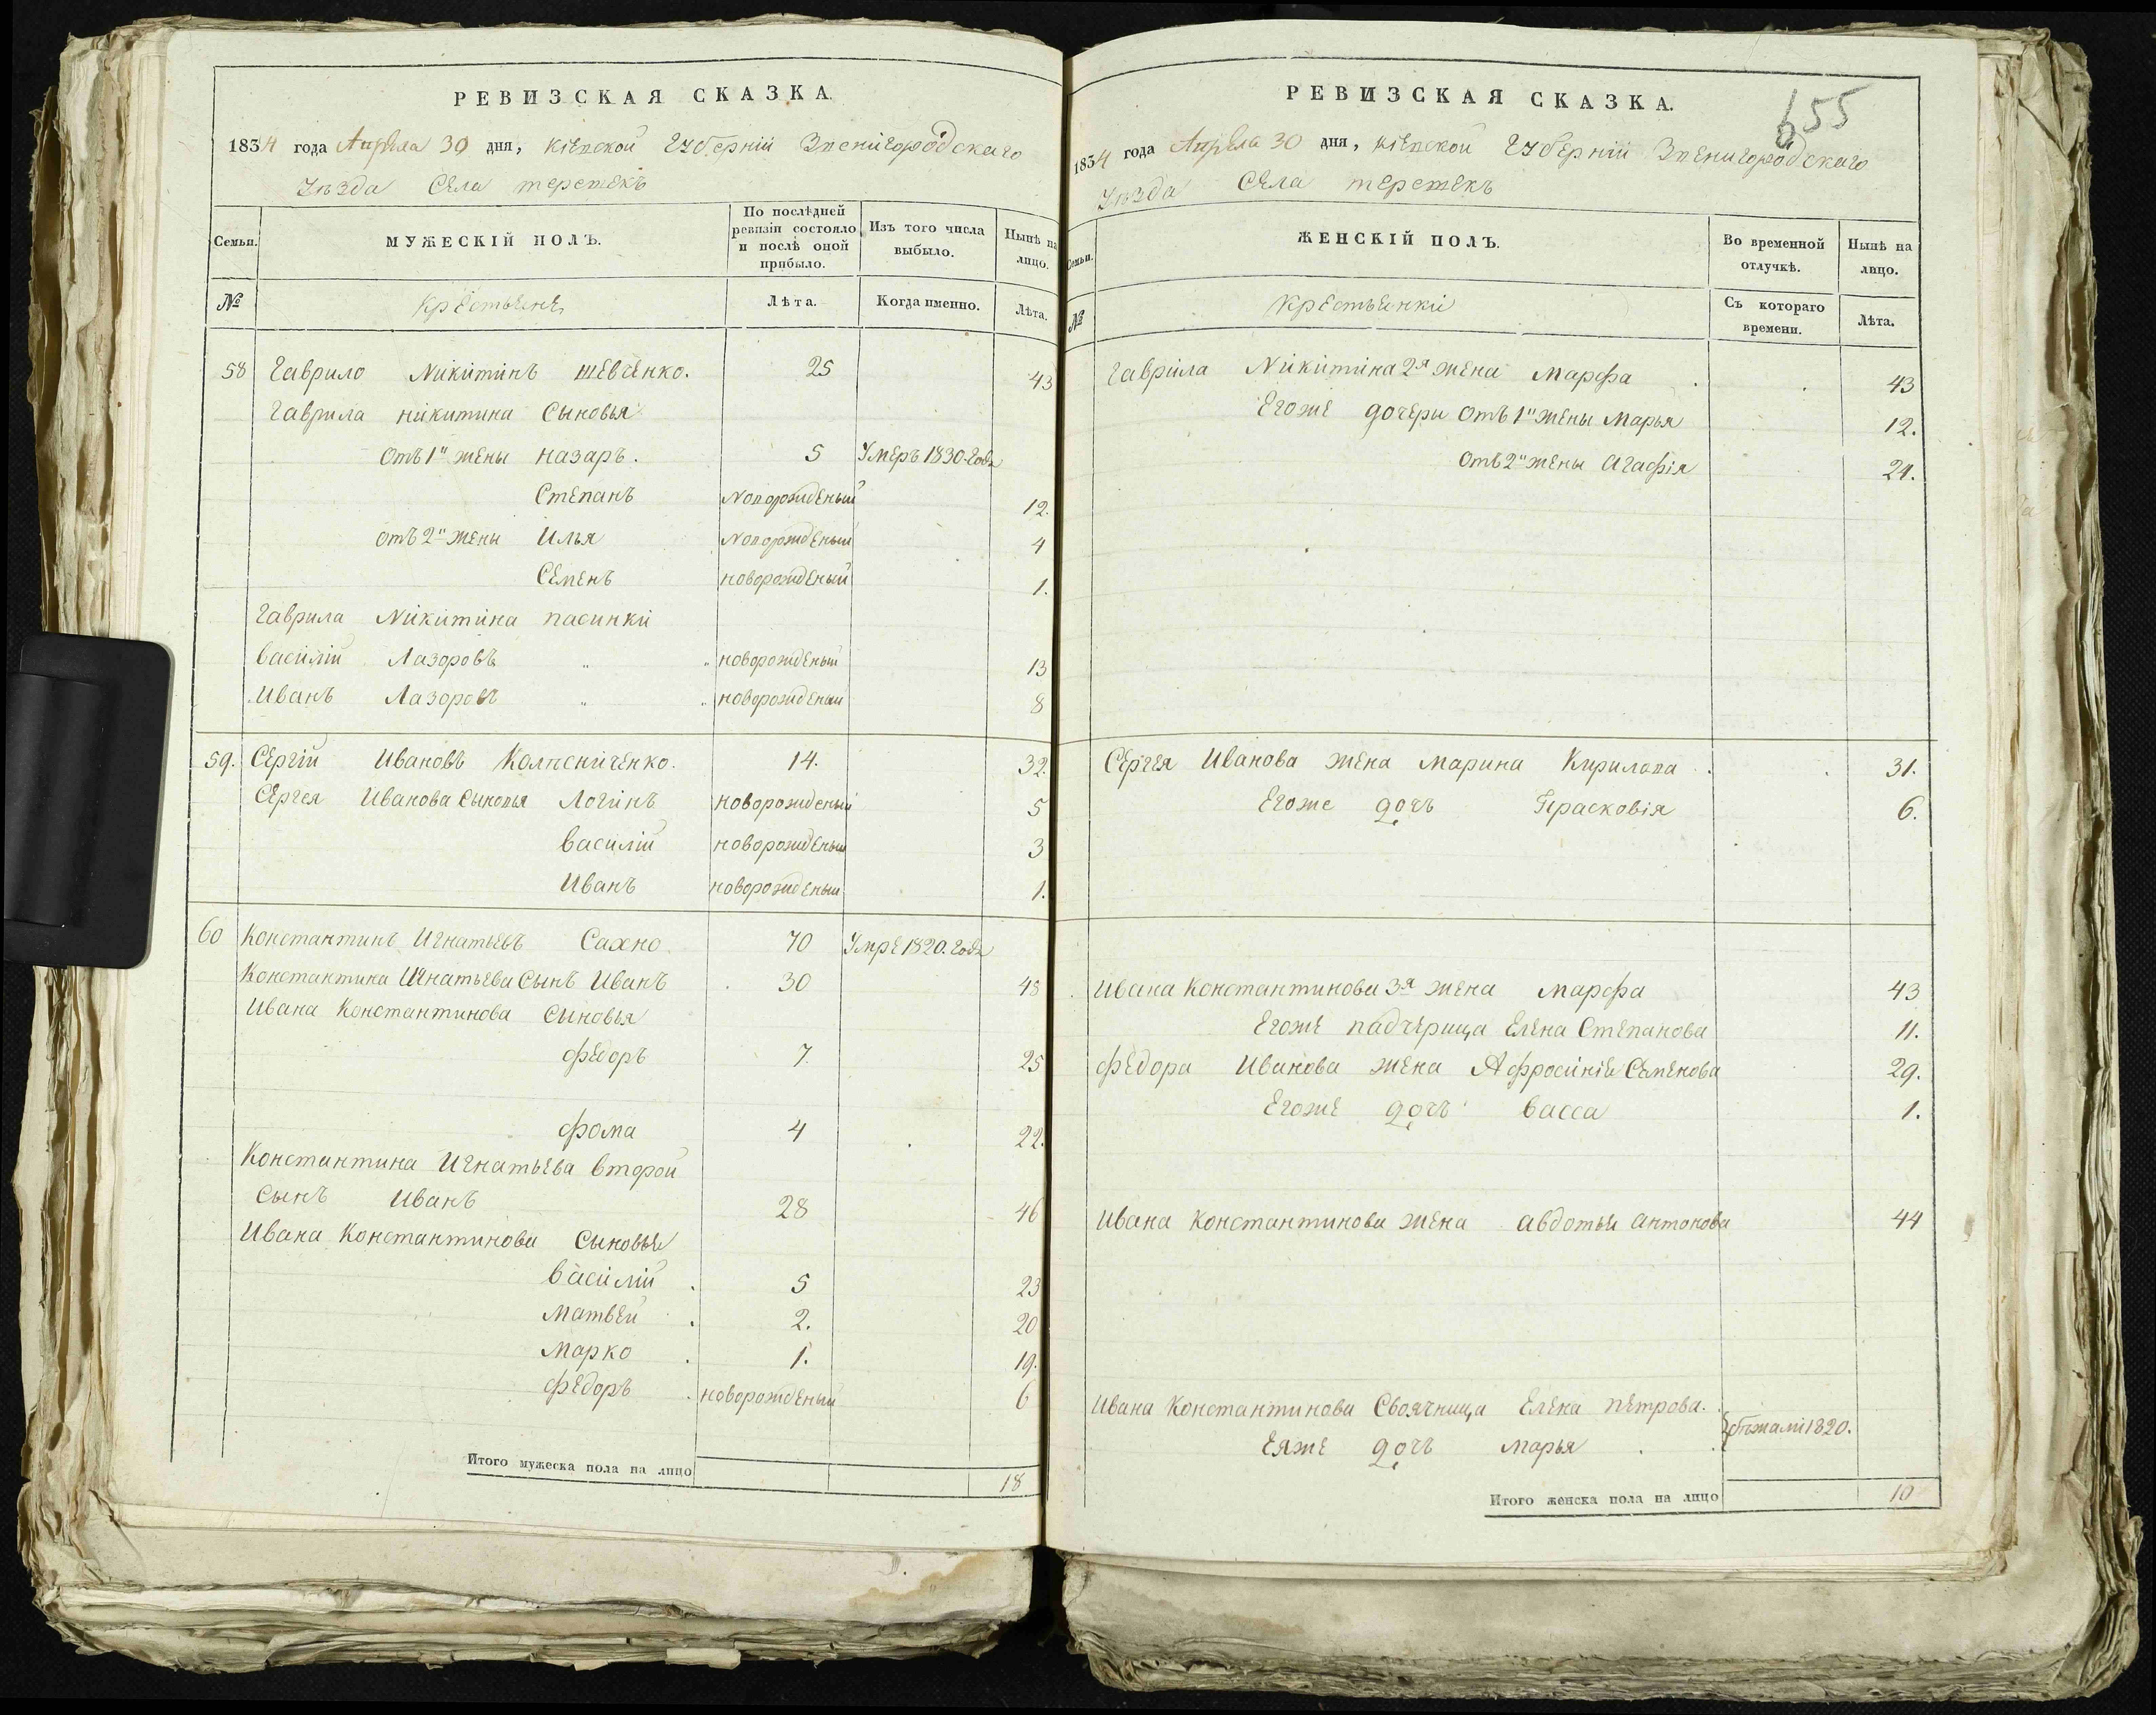 РЕВИЗСКАЯ СКАЗКА.
1834 года Апреля 30 дня, Кіевской Губерніи Звенигородскаго
Уѣзда Села
Семьи.
МУЖЕСКІЙ ПОЛЪ.
По послѣдней ревизіи состояло и послѣ оной прибыло.
Изъ того числа выбыло.
Нынѣ на лицо.
№
Крестьяне
Лѣта.
Когда именно.
Лѣта.
58 Гаврило Никитинъ Шевченко. 25 43
Гаврила Никитина Сыновья
Отъ 1й жены Назаръ. 5 Умеръ 1830 года
Степанъ Новорожденый 12.
отъ 2й жены Илья Новорожденый 4
Семенъ новорожденый 1.
Гаврила Никитина пасинки
Василій Лазоровъ „ „ новорожденый 13
Иванъ Лазоровъ „ „ новорожденый 8
59. Сергій Ивановъ Колесниченко. 14. 32.
Сергея Иванова Сыновья Логинъ новорожденый 5
Василій новорожденый 3
Иванъ новорожденый 1.
60 Константинъ Игнатьевъ Сахно 70 Умре 1820. Года
Константина Игнатьева Сынъ Иванъ 30 48
Ивана Константинова Сыновья
Федоръ 7. 25
Фома 4 22.
Константина Игнатьева второй
Сынъ Иванъ 28 46
Ивана Константинова Сыновья
Василій 5 23
Матвей 2. 20
Марко 1. 19.
Федоръ новорожденый 6
Итого мужеска пола на лицо 18
655
РЕВИЗСКАЯ СКАЗКА.
1834 года Апреля 30 дня, Кіевской Губерніи Звенигородскаго
Уѣзда Села
Семьи.
ЖЕНСКІЙ ПОЛЪ.
Во временной отлучкѣ.
Нынѣ на лицо.
№
Крестьянки
Съ котораго времени.
Лѣта.
Гаврила Никитина 2я жена Марфа 43
Егоже дочери Отъ 1й жены Марья 12.
Отъ 2й жены Агафія 21.
Сергея Иванова жена Марина Кирилова 31.
Егоже дочь Прасковія 6.
Ивана Константинова 3я жена Марфа 43
Егоже падчерица Елена Степанова 11.
Федора Иванова жена Афросинія Семенова 29.
Егоже дочь Васса 1.
Ивана Константинова жена Авдотья Антонова 44
Ивана Константинова Своячница Елена Петрова.
бѣжали 1820.
Еяже дочь Марья
Итого женска пола на лицо 10